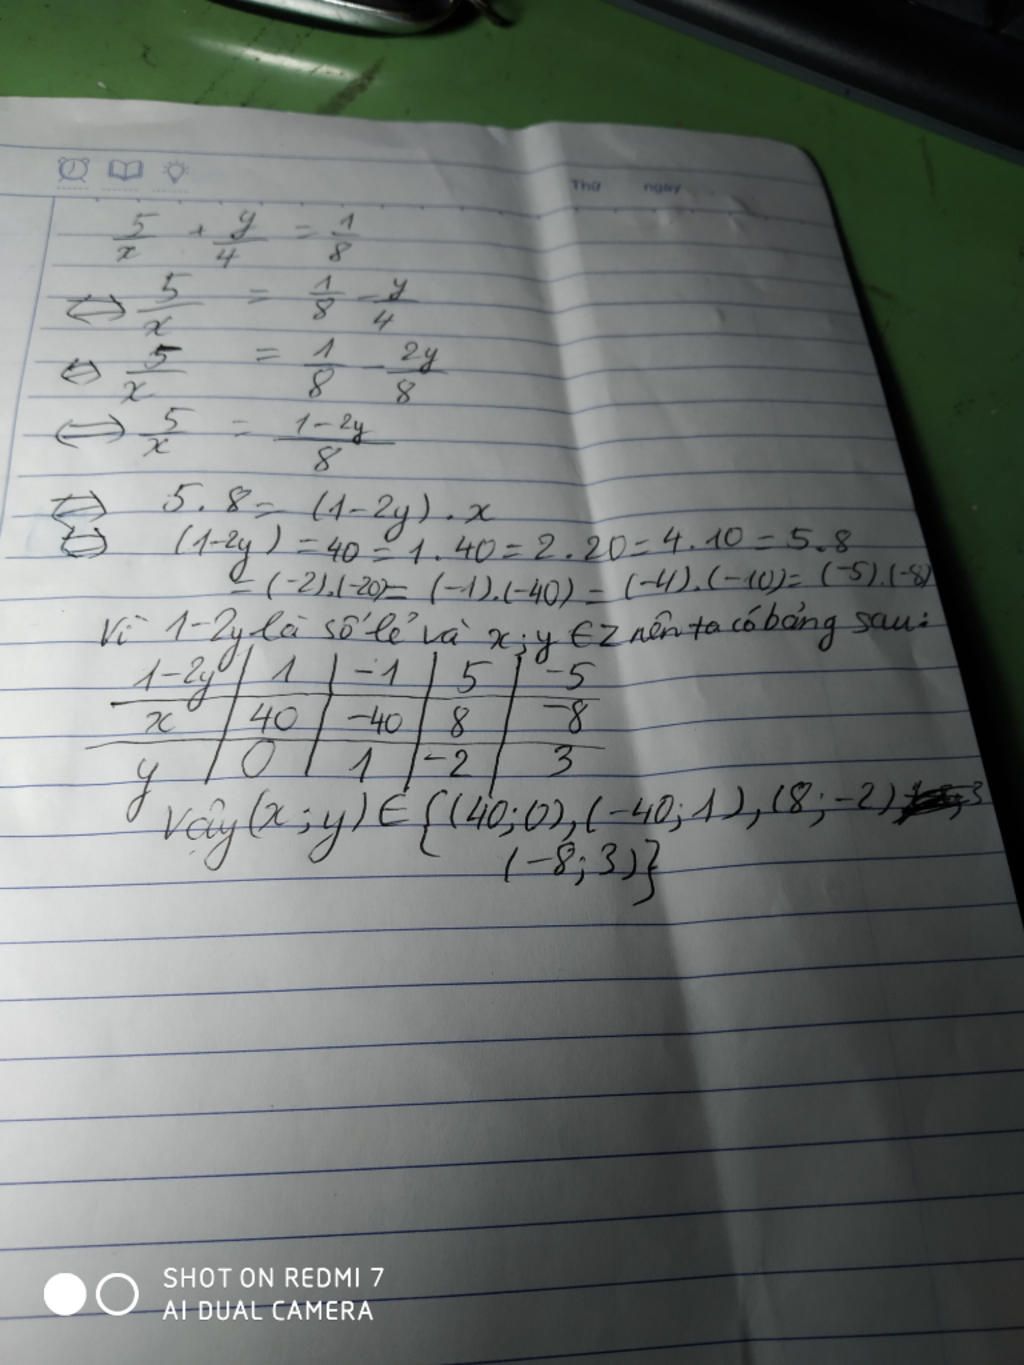 Thứ ngày
5/x + y/4 = 1/8
⇔ 5/x = 1/8 - y/4
⇔ 5/x = 1/8 - 2y/8
⇔ 5/x = (1-2y)/8
⇔ 5.8 = (1-2y).x
⇔ (1-2y) = 40 = 1.40 = 2.20 = 4.10 = 5.8
= (-2).(-20) = (-1).(-40) = (-4).(-10) = (-5).(-8)
Vì 1-2y là số lẻ và x;y ∈ Z nên ta có bảng sau:
1-2y | 1 | -1 | 5 | -5
x | 40 | -40 | 8 | -8
y | 0 | 1 | -2 | 3
Vậy (x;y) ∈ {(40;0),(-40;1),(8;-2)
(-8;3)}
SHOT ON REDMI 7
AI DUAL CAMERA